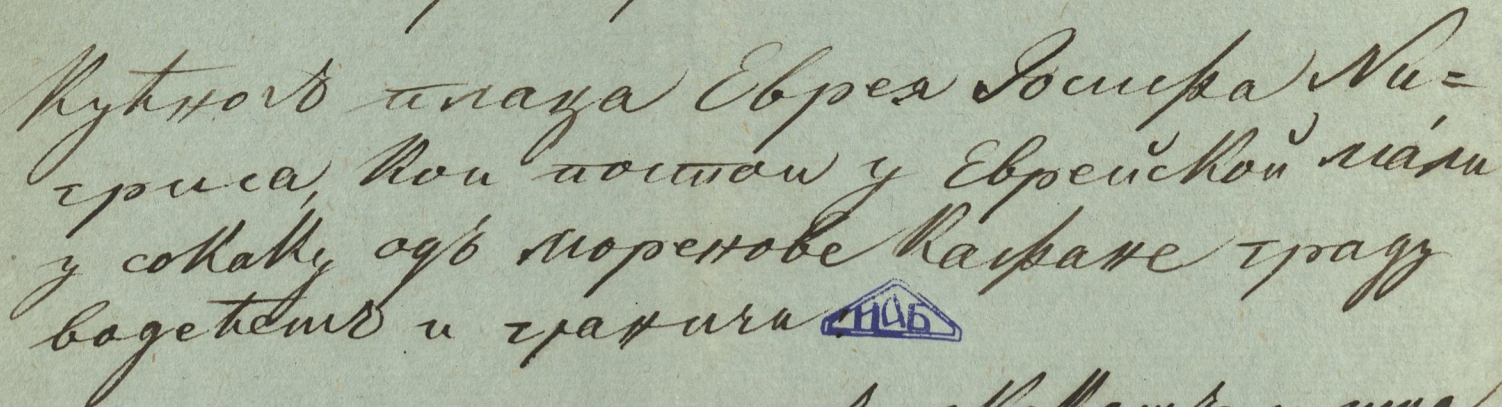 Кућногъ плаца Еврея Јосифа Ни=
гриса, кои постои у Еврейской мали
у сокаку одъ Моренове Кафане граду
водећемъ и граничи
НЦБ